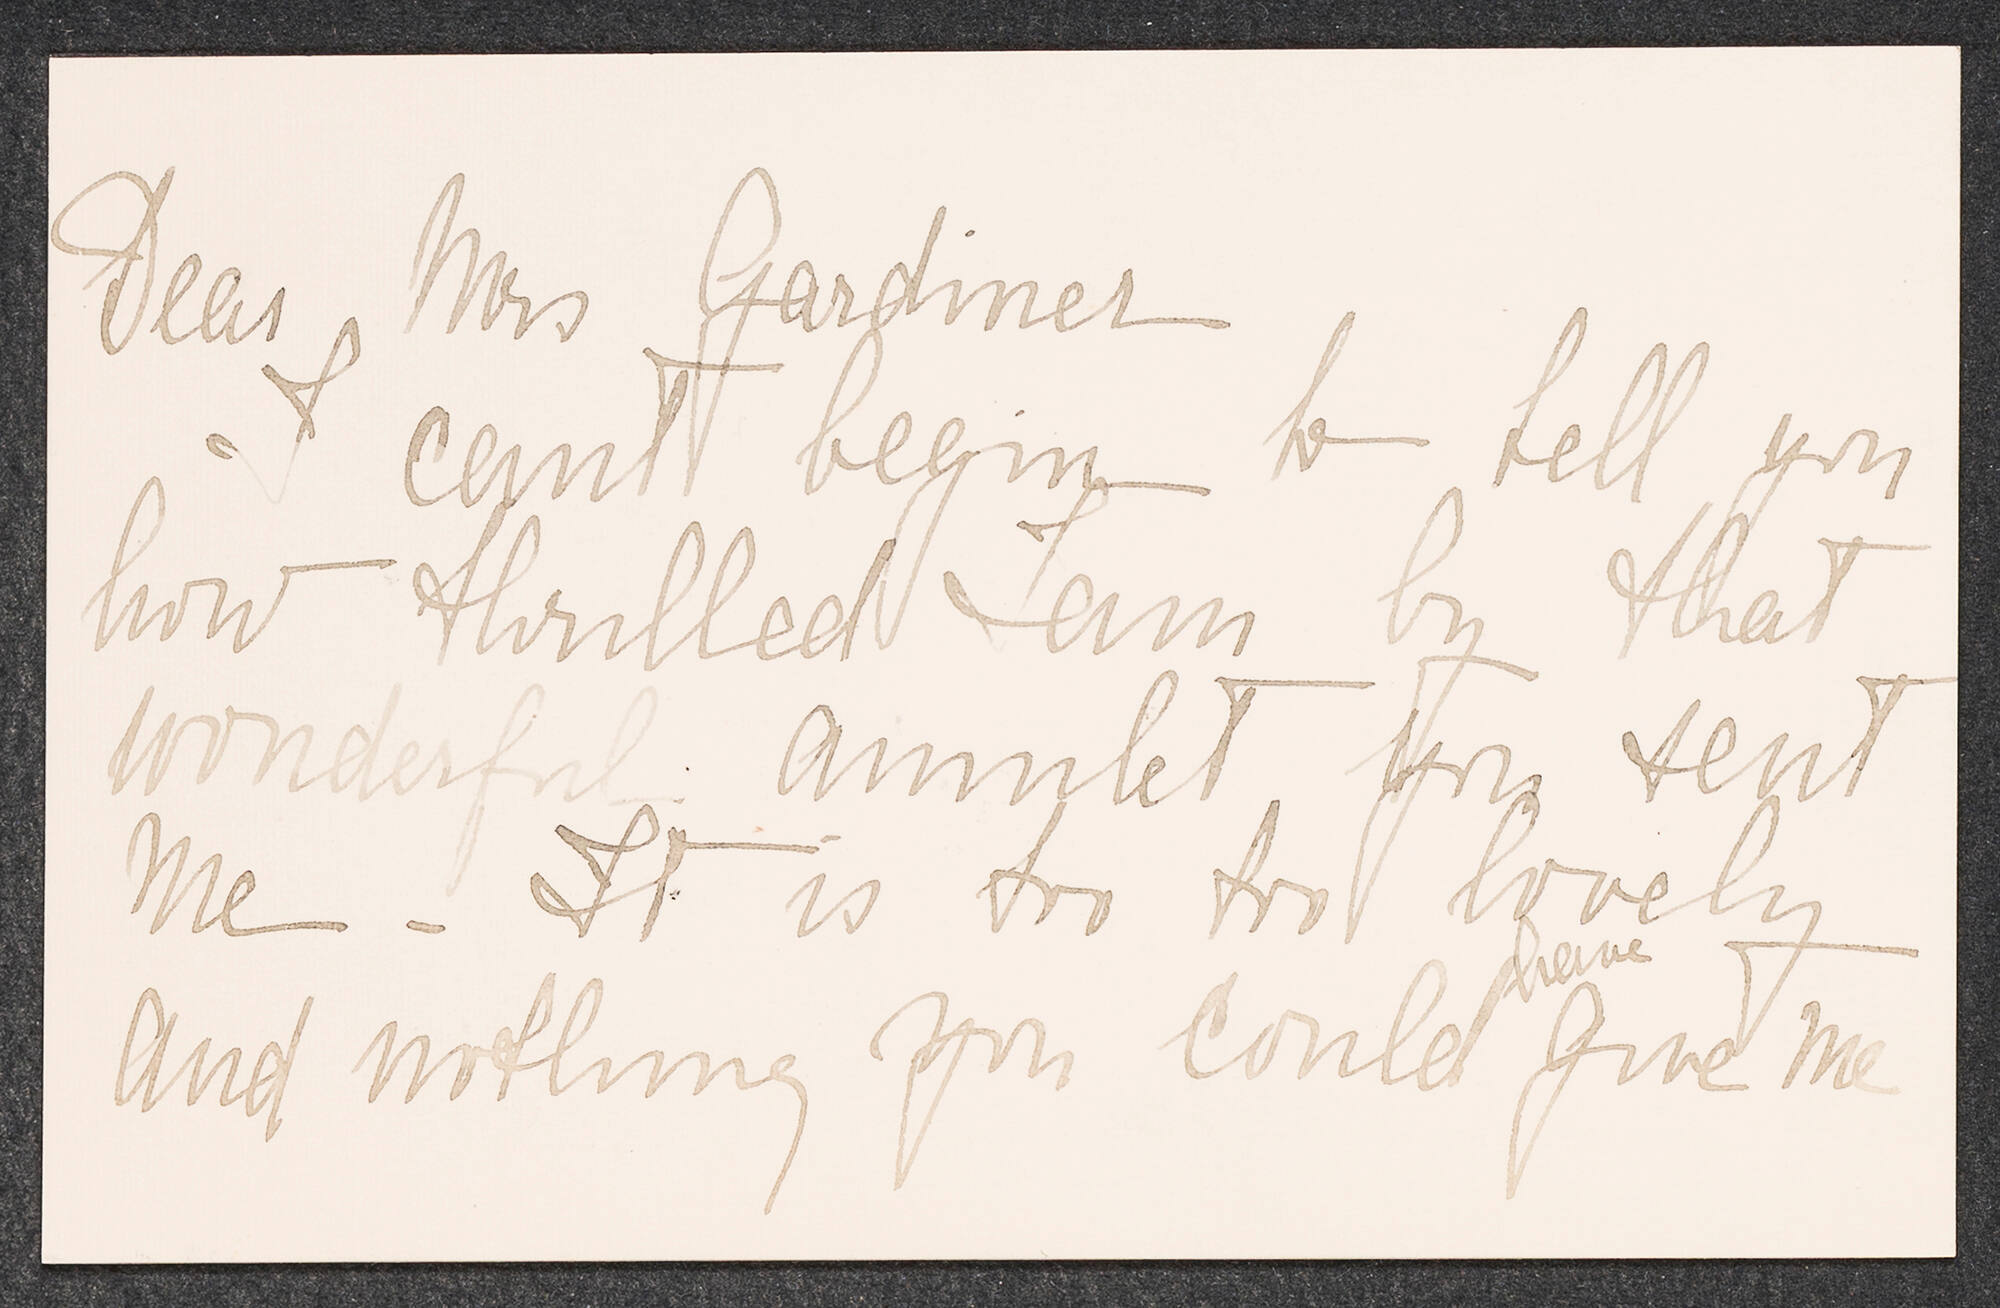 Dear Mrs Gardiner
I cant begin to tell you
how thrilled I am by that
wonderful amulet you sent
me - It is too too lovely
and nothing you could have give me